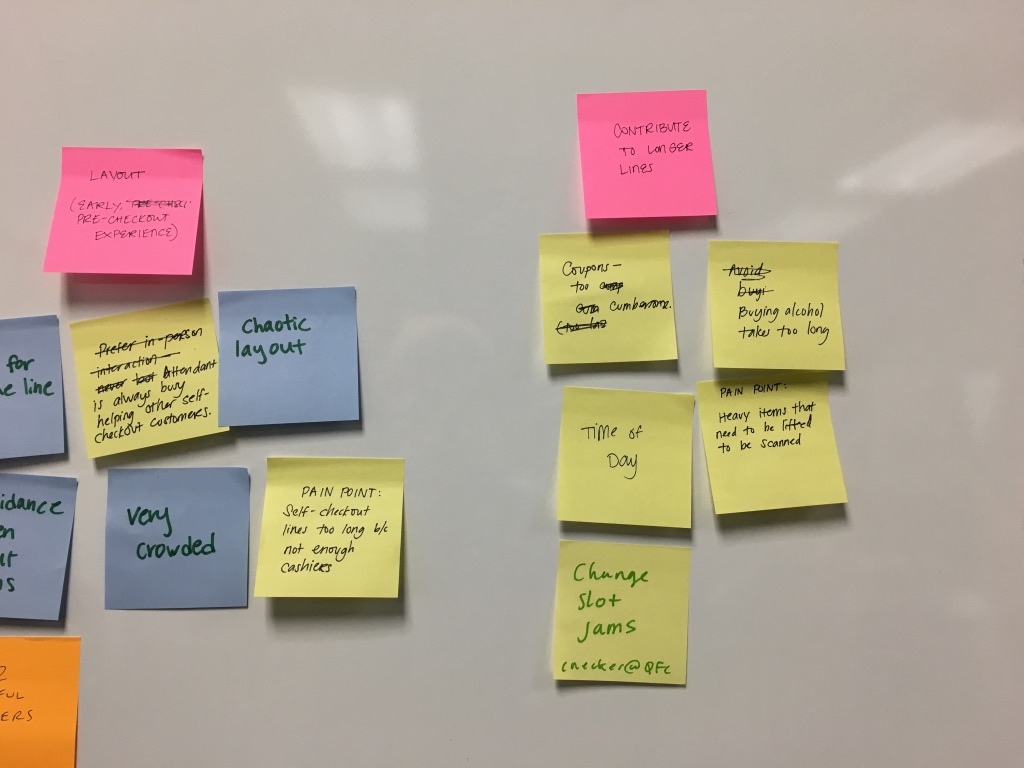 LAYOUT
(EARLY, PRE-CHECK
PRE-CHECKOUT
EXPERIENCE)
for
line
Prefer in-person
interaction —
never but Attendant
is always busy
helping other self-
checkout customers.
Chaotic
layout
Very
crowded
PAIN POINT:
Self-checkout
lines too long b/c
not enough
cashiers
CONTRIBUTE
TO LONGER
LINES
Coupons—
too
cumbersome.
Avoid
buyi
Buying alcohol
takes too long
TIME OF
DAY
PAIN POINT:
Heavy items that
need to be lifted
to be scanned
Change
Slot
Jams
checker@QFC